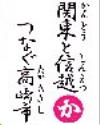 関東と信越
つなぐ高崎市
かんとう
しんえつ
たかさきし
か